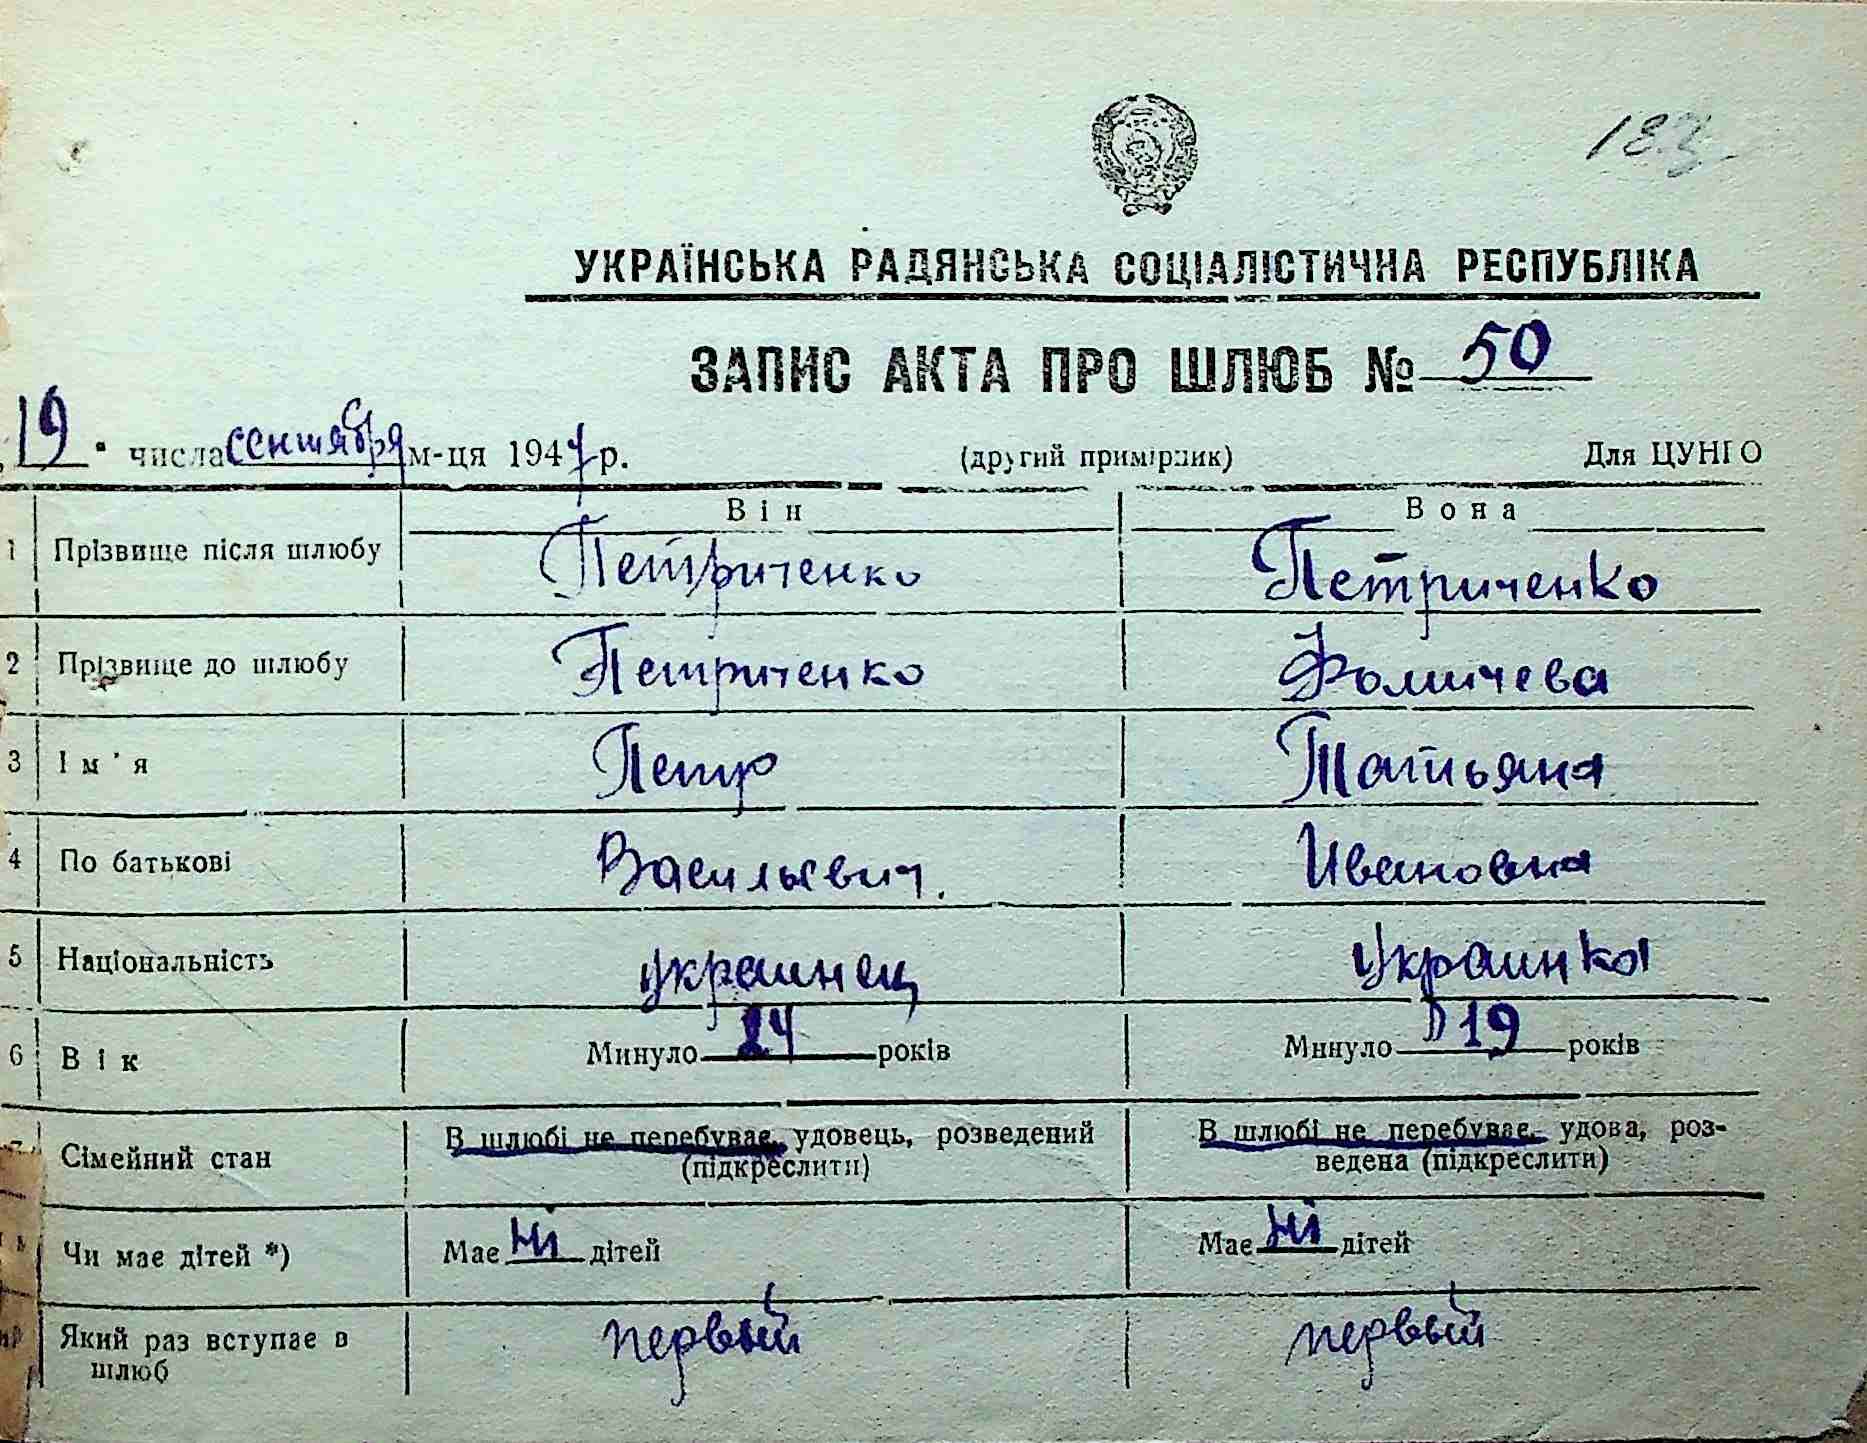 183
УКРАЇНСЬКА РАДЯНСЬКА СОЦІАЛІСТИЧНА РЕСПУБЛІКА
ЗАПИС АКТА ПРО ШЛЮБ № 50
19 · числа сентября м-ця 1947 р. (другий примірник) Для ЦУНГО
Він Вона
1 Прізвище після шлюбу Петриченко Петриченко
2 Прізвище до шлюбу Петриченко Фомичева
3 Ім'я Петр Татьяна
4 По батькові Васильевич. Ивановна
5 Національність украинец украинка
6 Вік Минуло 24 років Минуло 19 років
7 Сімейний стан В шлюбі не перебуває, удовець, розведений В шлюбі не перебуває, удова, роз-
(підкреслити) ведена (підкреслити)
Чи має дітей *) Має ні дітей Має ні дітей
Який раз вступає в первый первый
шлюб